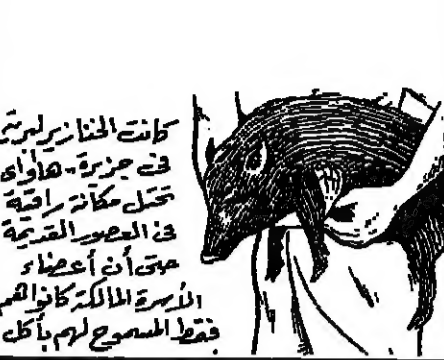 كانت الخنازير البرية
فى جزيرة - هاواى
تحتل مكانة راقية
فى العصور القديمة
حتى أن أعضاء
الأسرة المالكة كانوا هم
فقط المسموح لهم بأكل